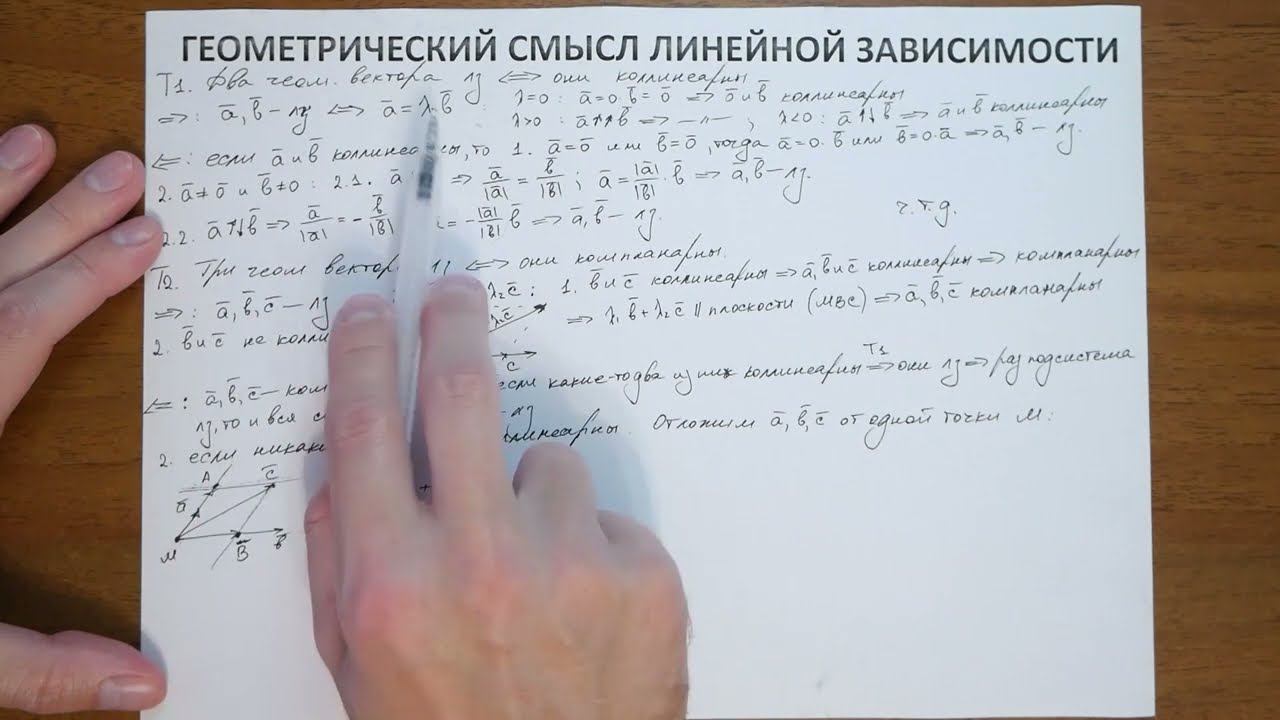 ГЕОМЕТРИЧЕСКИЙ СМЫСЛ ЛИНЕЙНОЙ ЗАВИСИМОСТИ
Т1. Два геом. вектора лз ⟺ они коллинеарны
⇒: a̅, b̅ – лз ⟺ a̅ = λ·b̅ : λ=0 : a̅=0·b̅=0̅ ⇒ 0̅ и b̅ коллинеарны
λ>0 : a̅↑↑b̅ ⇒ –〃– ; λ<0 : a̅↑↓b̅ ⇒ a̅ и b̅ коллинеарны
⇐: если a̅ и b̅ коллинеарны, то 1. a̅=0̅ или b̅=0̅, тогда a̅=0·b̅ или b̅=0·a̅ ⇒ a̅, b̅ – лз.
2. a̅≠0̅ и b̅≠0 : 2.1. a̅ ⇒ a̅/|a̅| = b̅/|b̅| ; a̅ = |a̅|/|b̅| · b̅ ⇒ a̅, b̅ – лз.
2.2. a̅↑↓b̅ ⇒ a̅/|a̅| = – b̅/|b̅| = – |a̅|/|b̅| b̅ ⇒ a̅, b̅ – лз. ч.т.д.
Т2. Три геом вектор лз ⟺ они компланарны.
⇒: a̅, b̅, c̅ – лз λ₂c̅ : 1. b̅ и c̅ коллинеарны ⇒ a̅, b̅ и c̅ коллинеарны ⇒ компланарны
2. b̅ и c̅ не колли λ₂c̅ ⇒ λ₁b̅ + λ₂c̅ ∥ плоскости (MBC) ⇒ a̅, b̅, c̅ компланарны
c̅
⇐: a̅, b̅, c̅ – ком если какие-то два из них коллинеарны ⇒ (Т1) они лз ⇒ раз подсистема
лз, то и вся с – лз
2. если никак ллинеарны. Отложим a̅, b̅, c̅ от одной точки M:
A c̅
a̅ +
M B b̅